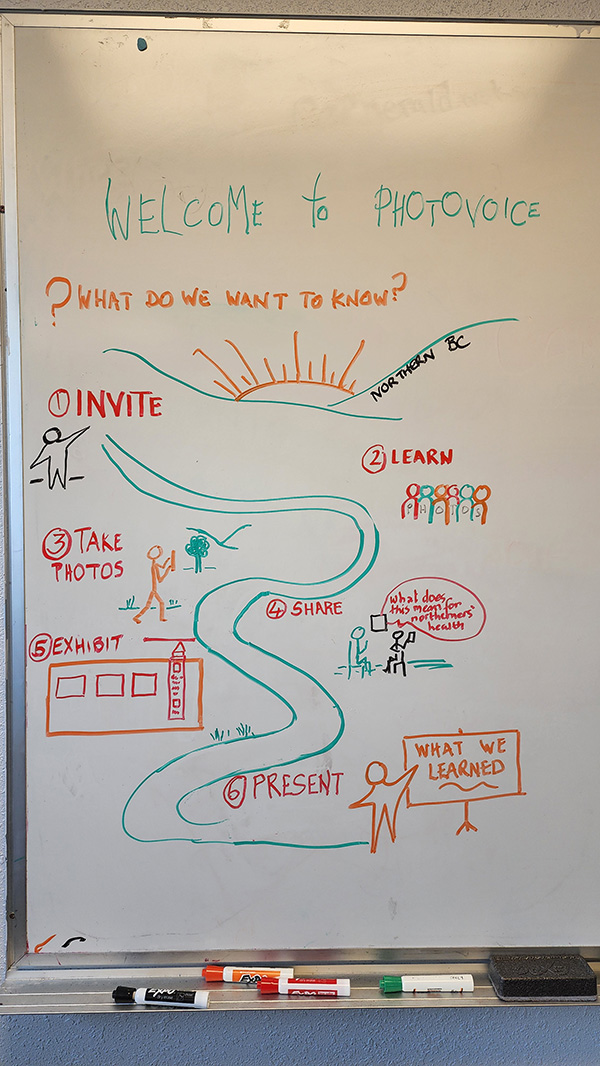 WELCOME to PHOTOVOICE
? WHAT DO WE WANT TO KNOW?
NORTHERN BC
① INVITE
② LEARN
PHOTOS
③ TAKE
PHOTOS
④ SHARE
what does
this mean for
northerners'
health
⑤ EXHIBIT
⑥ PRESENT
WHAT WE
LEARNED
EXPO
EXPO
EXPO